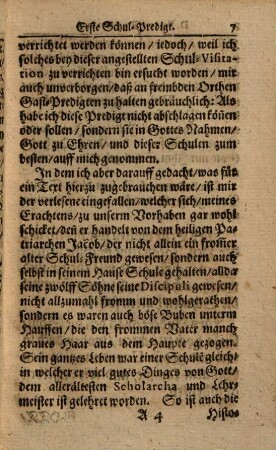 Erste Schul-Predigt. 7
verrichtet werden können / iedoch / weil ich
solches bey dieser angestellten Schul-Visita-
tion zu verrichten bin ersucht worden / mir
auch unverborgen / daß an frembden Orthen
Gast-Predigten zu halten gebräuchlich: Als
habe ich diese Predigt nicht abschlagen köñen
oder sollen / sondern sie in Gottes Nahmen /
Gott zu Ehren / und dieser Schulen zum
besten / auff mich genommen.
In dem ich aber darauff gedacht / was für
ein Text hierzu zugebrauchen wäre / ist mir
der verlesene eingefallen / welcher sich / meines
Erachtens / zu unserm Vorhaben gar wohl
schicket / deñ er handelt von dem heiligen Pa-
triarchen Jacob / der nicht allein ein from̃er
alter Schul-Freund gewesen / sondern auch
selbst in seinem Hause Schule gehalten / allda
seine zwölff Söhne seine Discipuli gewesen /
nicht allzumahl fromm und wohlgerathen /
sondern es waren auch böse Buben unterm
Hauffen / die den frommen Vater manch
graues Haar aus dem Haupte gezogen.
Sein gantzes Leben war einer Schule gleich /
in welcher er viel gutes Dinges von Gott /
dem allerältesten Scholarcha und Lehr-
meister ist gelehret worden. So ist auch die
A 4 Histo-